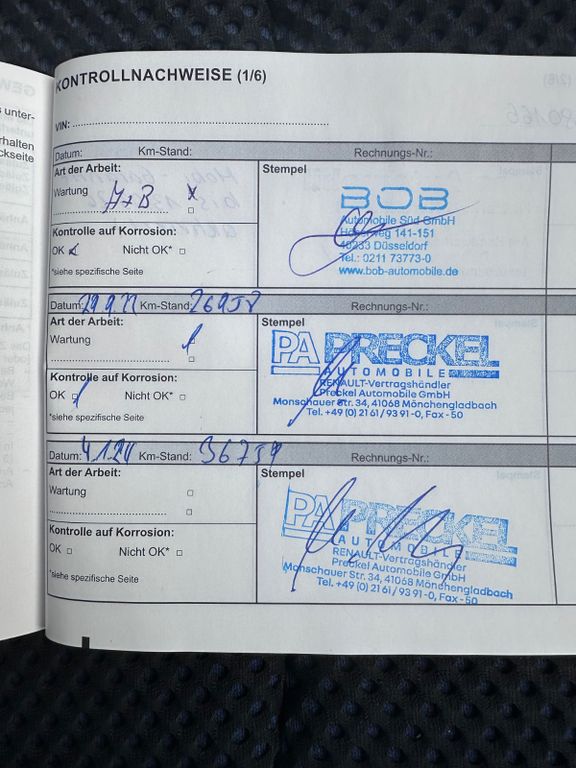 KONTROLLNACHWEISE (1/6)
VIN:
Datum: Km-Stand: Rechnungs-Nr.:
Art der Arbeit:
Wartung A+B x
Kontrolle auf Korrosion:
OK x Nicht OK*
*siehe spezifische Seite
Stempel
BOB
Automobile Süd GmbH
Höherweg 141-151
40233 Düsseldorf
Tel.: 0211 73773-0
www.bob-automobile.de
Datum: Km-Stand: Rechnungs-Nr.:
Art der Arbeit:
Wartung
Kontrolle auf Korrosion:
OK Nicht OK*
*siehe spezifische Seite
Stempel
PA PRECKEL
AUTOMOBILE
RENAULT-Vertragshändler
Preckel Automobile GmbH
Monschauer Str. 34, 41068 Mönchengladbach
Tel. +49 (0) 21 61 / 93 91-0, Fax - 50
Datum: Km-Stand: Rechnungs-Nr.:
Art der Arbeit:
Wartung
Kontrolle auf Korrosion:
OK Nicht OK*
*siehe spezifische Seite
Stempel
PA PRECKEL
AUTOMOBILE
RENAULT-Vertragshändler
Preckel Automobile GmbH
Monschauer Str. 34, 41068 Mönchengladbach
Tel. +49 (0) 21 61 / 93 91-0, Fax - 50